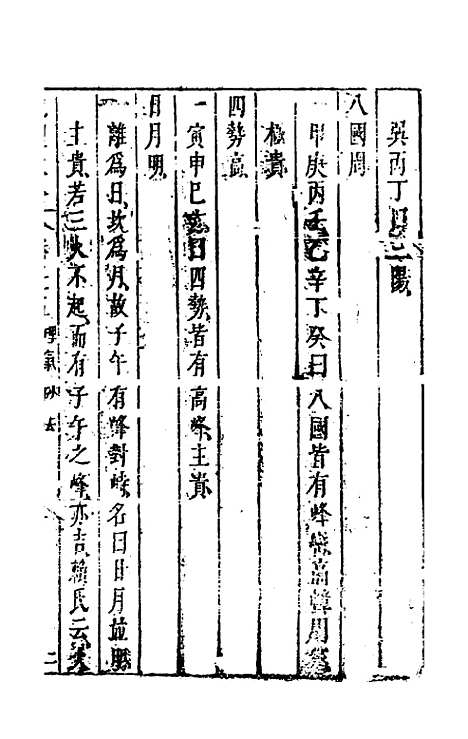 巽丙丁 陽
八國周
一甲庚丙壬乙辛丁癸曰八國皆有峰巒高聳周
極貴
四勢高
一寅申巳亥曰四勢皆有高峰主貴
日月明
一離爲日坎爲月故子午有峰對峙名曰日月並明
主貴若三火不起而有子午之峰亦吉賴氏云
理氣砂法 二